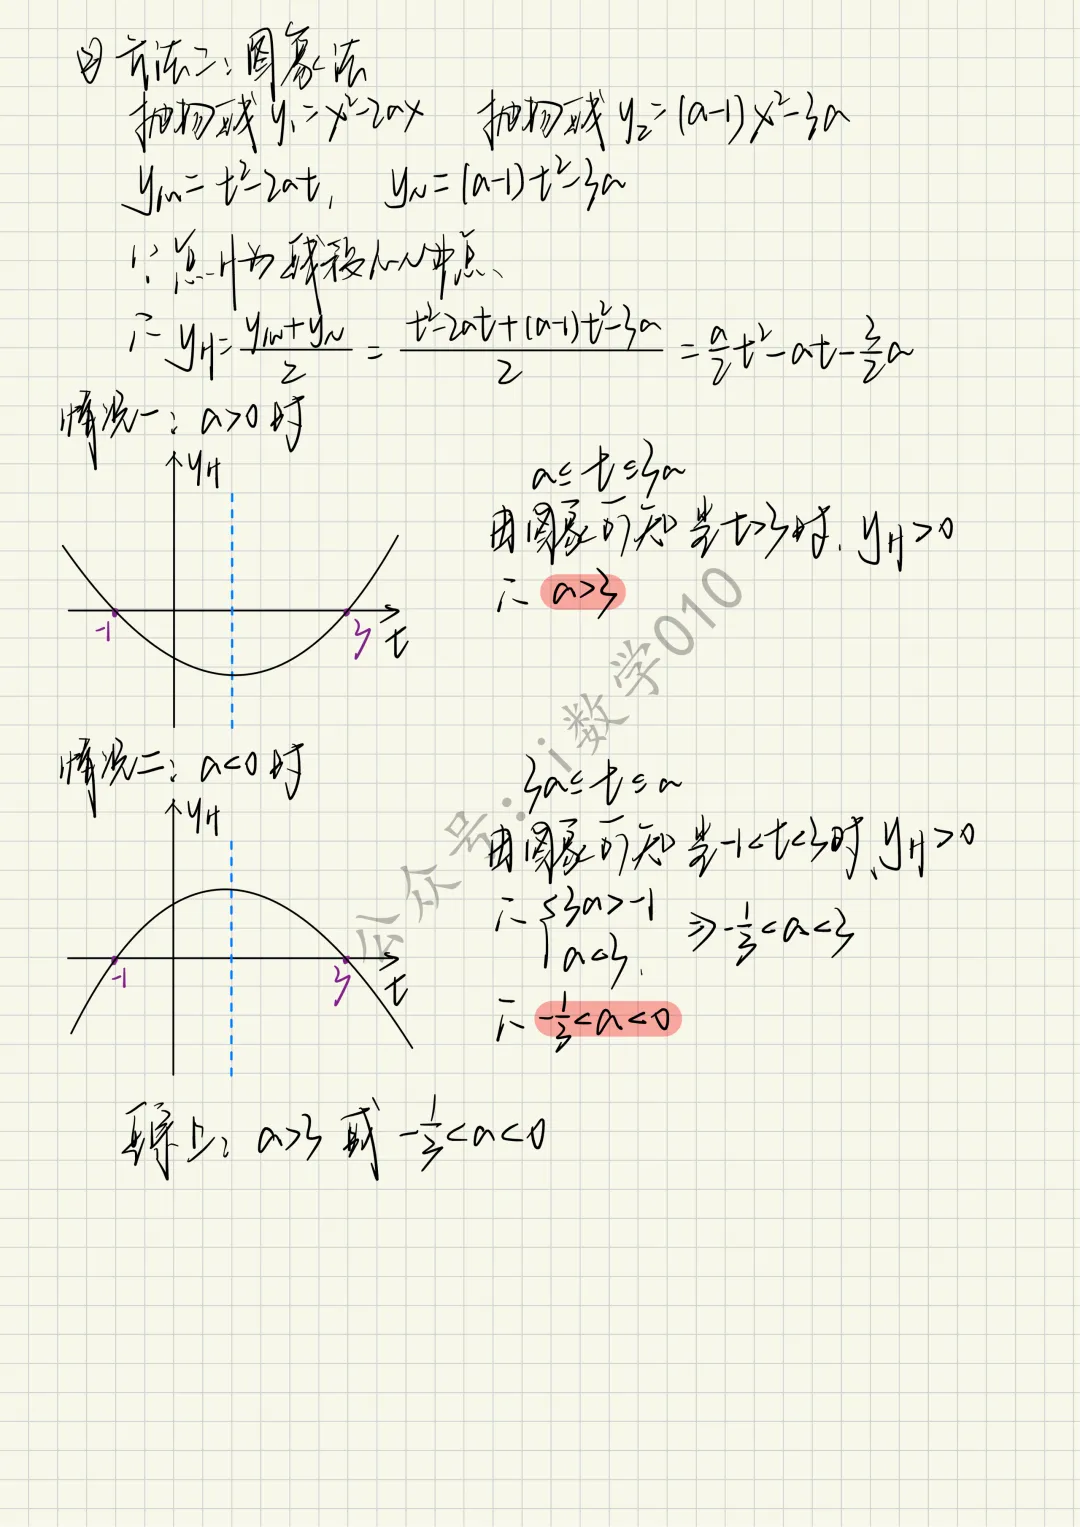 ② 方法二：图象法
抛物线 y₁=x²-2ax 抛物线 y₂=(a-1)x²-3a
y_M=t²-2at, y_N=(a-1)t²-3a
∵点H为线段MN中点、
∴ y_H=\frac{y_M+y_N}{2}=\frac{t²-2at+(a-1)t²-3a}{2}=\frac{a}{2}t²-at-\frac{3}{2}a
情况一：a>0时
y_H
a≤t≤3a
由图象可知 当t>3时, y_H>0
∴ a>3
-1 3 t
情况二：a<0时
y_H
3a≤t≤a
由图象可知 当-1<t<3时, y_H>0
∴ { 3a>-1
a<3.
⇒ -\frac{1}{3}<a<3
-1 3 t
∴ -\frac{1}{3}<a<0
综上：a>3 或 -\frac{1}{3}<a<0
公众号：i数学010